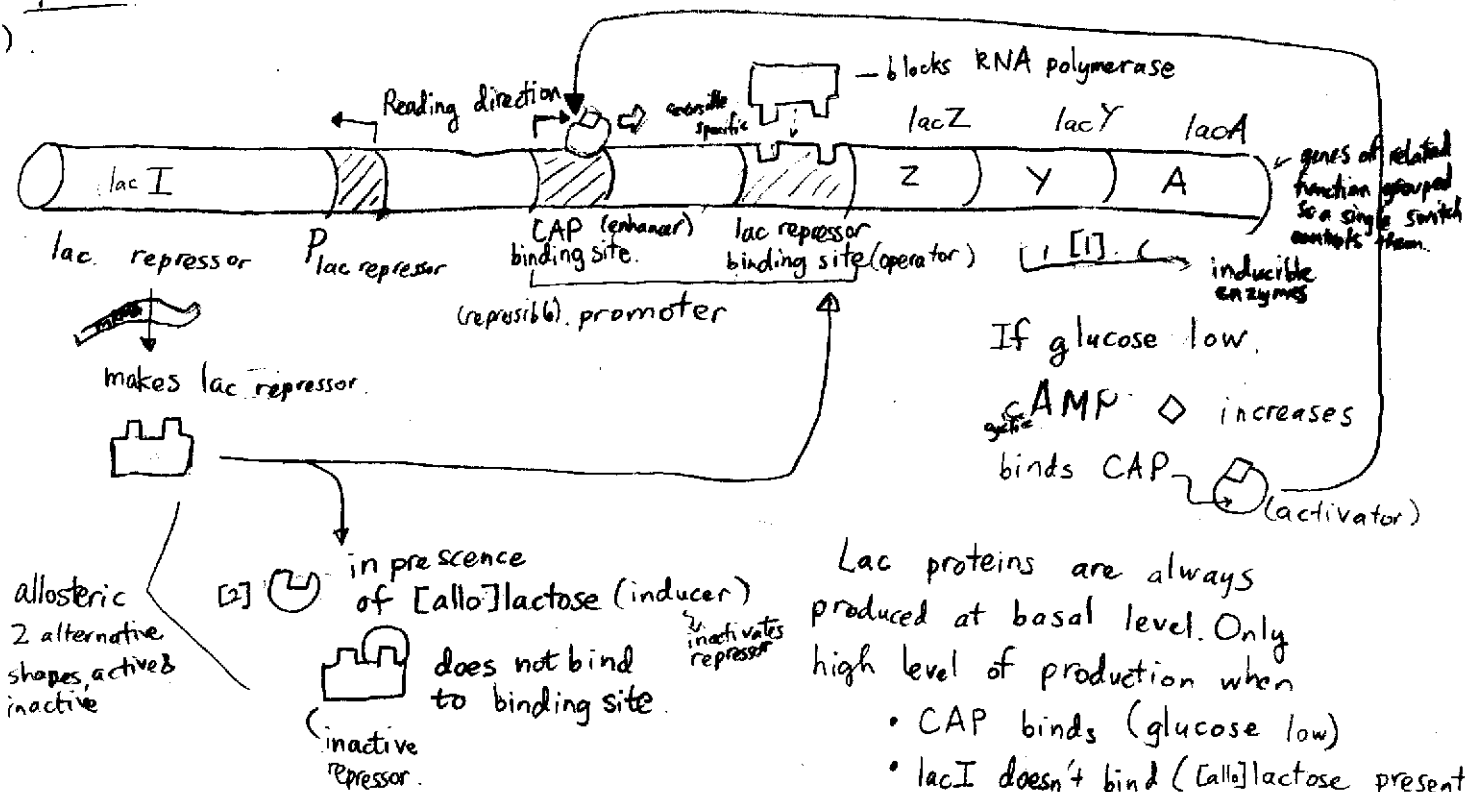 ).
Reading direction
— blocks RNA polymerase
specific
lacZ
lacY
lacA
lac I
Z
Y
A
genes of related
function grouped
so a single switch
controls them.
lac repressor
P lac repressor
CAP (enhancer)
binding site.
lac repressor
binding site (operator)
[1]
inducible
enzymes
(repressible). promoter
mRNA
makes lac repressor.
If glucose low,
cyclic
cAMP ◇ increases
binds CAP
(activator)
allosteric
2 alternative
shapes, active &
inactive
[2]
in prescence
of [allo]lactose (inducer)
inactivates
repressor
does not bind
to binding site.
inactive
repressor.
Lac proteins are always
produced at basal level. Only
high level of production when
• CAP binds (glucose low)
• lacI doesn't bind ([allo]lactose present